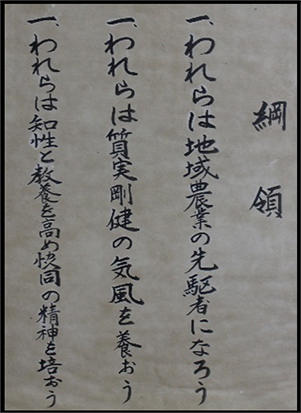 綱領
一、われらは地域農業の先駆者になろう
一、われらは質実剛健の気風を養おう
一、われらは知性と教養を高め協同の精神を培おう